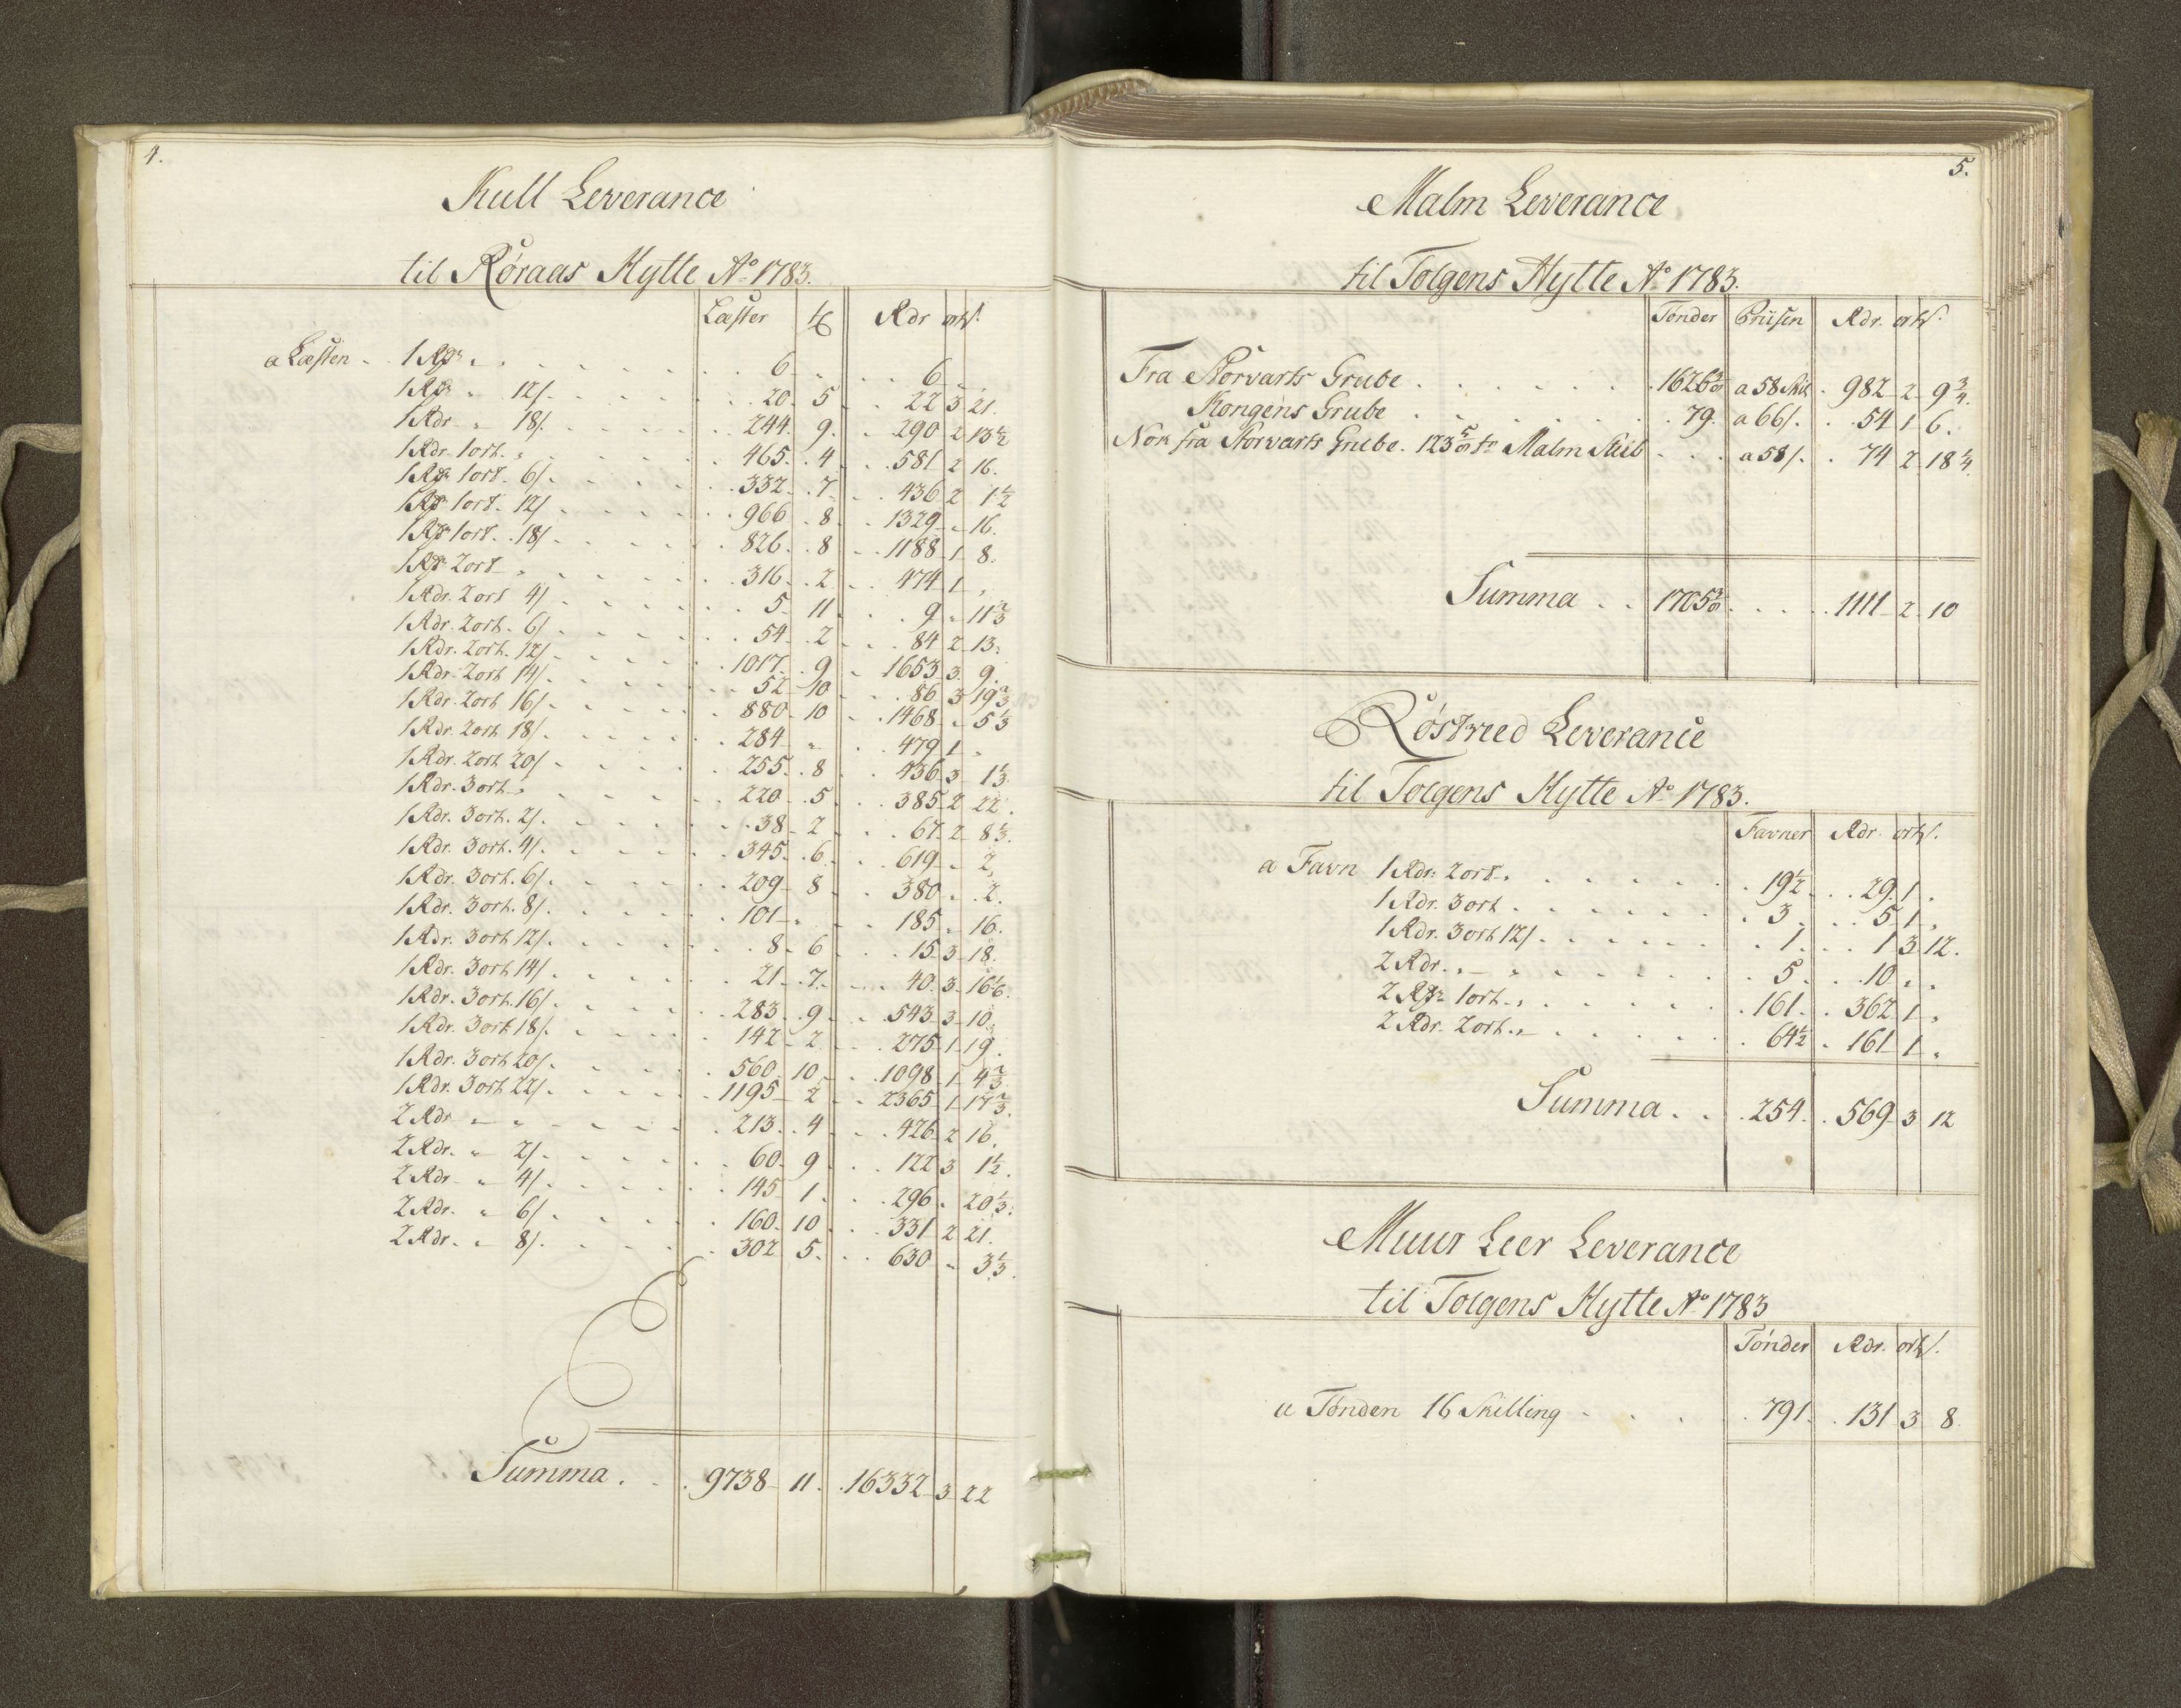 4.
Kull Leverance
til Røraas Hytte Aº 1783.
Læster tr Rdr ort s.
a Læsten 1 Rdr " 6 " 6 " "
1 Rdr " 12 s. 20 5 22 3 21.
1 Rdr " 18 s. 244. 9. 290 2 13 1/2
1 Rdr 1 ort. " 465. 4 581 2 16.
1 Rdr 1 ort. 6 s. 332. 7 436 2 1 1/2
1 Rdr 1 ort. 12 s. 966. 8 1329 " 16.
1 Rdr 1 ort. 18 s. 826. 8 1188 1 8.
1 Rdr 2 ort " 316. 2 474 1 "
1 Rdr. 2 ort 4 s. 5 11 9 " 11 2/3
1 Rdr. 2 ort. 6 s. 54. 2 84 2 13.
1 Rdr. 2 ort. 12 s. 1017. 9 1653 3 9.
1 Rdr. 2 ort 14 s. 52 10 86 3 19 2/3
1 Rdr. 2 ort 16 s. 880 10 1468 " 5 1/3
1 Rdr. 2 ort 18 s. 284 " 479 1 "
1 Rdr. 2 ort 20 s. 255. 8 436 3 1 1/3
1 Rdr. 3 ort. " 220. 5 385 2 22.
1 Rdr. 3 ort. 2 s. 38 2 67 2 8 1/3.
1 Rdr. 3 ort. 4 s. 345. 6 619 " 2.
1 Rdr. 3 ort. 6 s. 209 8 380 " 2.
1 Rdr. 3 ort. 8 s. 101 " 185 " 16.
1 Rdr. 3 ort 12 s. 8 6 15 3 18.
1 Rdr. 3 ort 14 s. 21. 7. 40. 3 16 1/6.
1 Rdr. 3 ort. 16 s. 283. 9 543 3 10.
1 Rdr. 3 ort 18 s. 142 2 275 1 19.
1 Rdr. 3 ort 20 s. 560 10 1098 1 4 2/3
1 Rdr. 3 ort 22 s. 1195 2 2365 1 17 2/3.
2 Rdr " " 213. 4 426 2 16.
2 Rdr. " 2 s. 60 9 122 3 1 1/2.
2 Rdr " 4 s. 145 1 296 " 20 1/3.
2 Rdr. " 6 s. 160 10 331 2 21.
2 Rdr. " 8 s. 302 5. 630 " 3 1/3.
Summa. 9738 11. 16332 3 22
5.
Malm Leverance
til Tolgens Hytte Aº 1783.
Tønder Priisen Rdr. ort s.
Fra Storvarts Grube 1626 3/8 a 58 Skil. 982 2 9 3/4.
Kongens Grube 79. a 66 s. 54 1 6.
Nok fra Storvarts Grube. 123 5/8 tr Malm Slib a 58 s. 74 2 18 1/4.
Summa 1705 3/8 1111 2 10
Røstveed Leverance
til Tolgens Hytte Aº 1783.
Favner Rdr. ort s.
a Favn 1 Rdr: 2 ort " 19 1/2 29. 1 "
1 Rdr. 3 ort 3 5 1 "
1 Rdr. 3 ort 12 s. 1 1 3 12.
2 Rdr. " " 5 10 " "
2 Rdr 1 ort. " 161. 362 1 "
2 Rdr. 2 ort. " 64 1/2 161 1 "
Summa. 254. 569 3 12
Muur Leer Leverance
til Tolgens Hytte Aº 1783
Tønder Rdr. ort s.
a Tønden 16 Skilling 791. 131 3 8